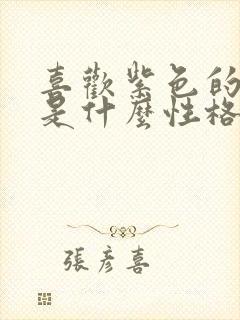 喜歡紫色的
是什麼性格
張彥喜